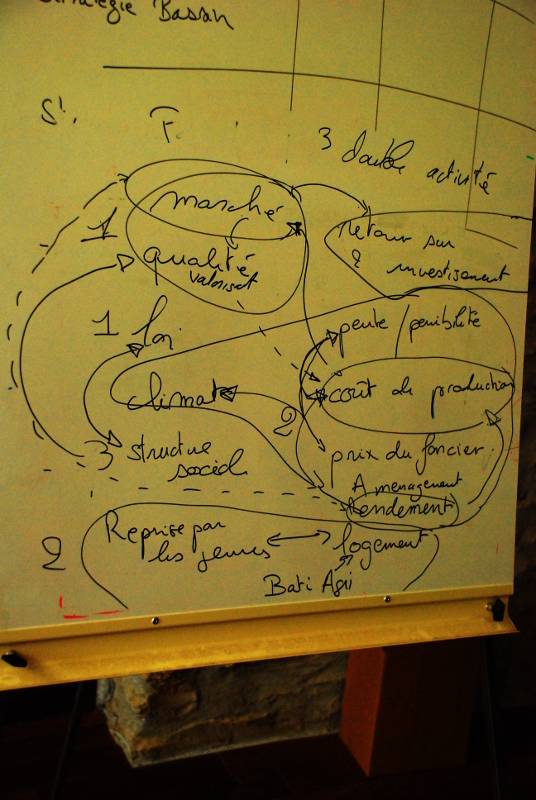 Stratégie Bassan
S!.
F
3 double activité
marché
1
Retour sur
investissement
qualité
valorisat
1 loi
pente / penibilité
climat
coût de production
2
3 structure
social
prix du foncier.
Amenagement
Rendement
Reprise par
les jeunes
2
logement
Bati Agri